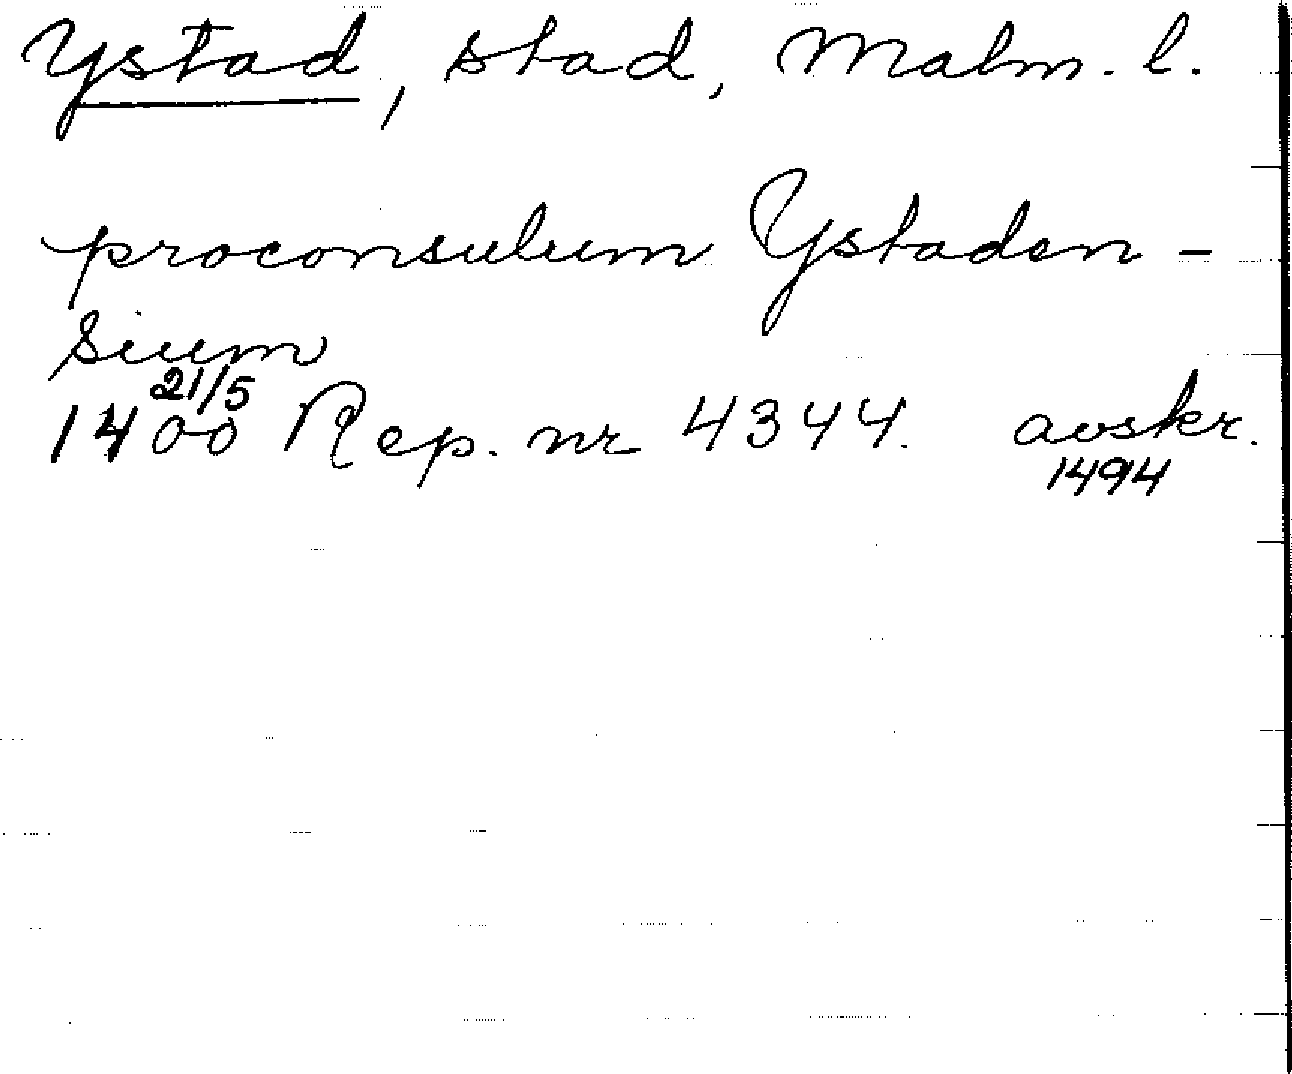 Ystad, stad, Malm. l.
proconsulum Ystaden-
sium
21/5
1400 Rep. nr 4344. avskr.
1494